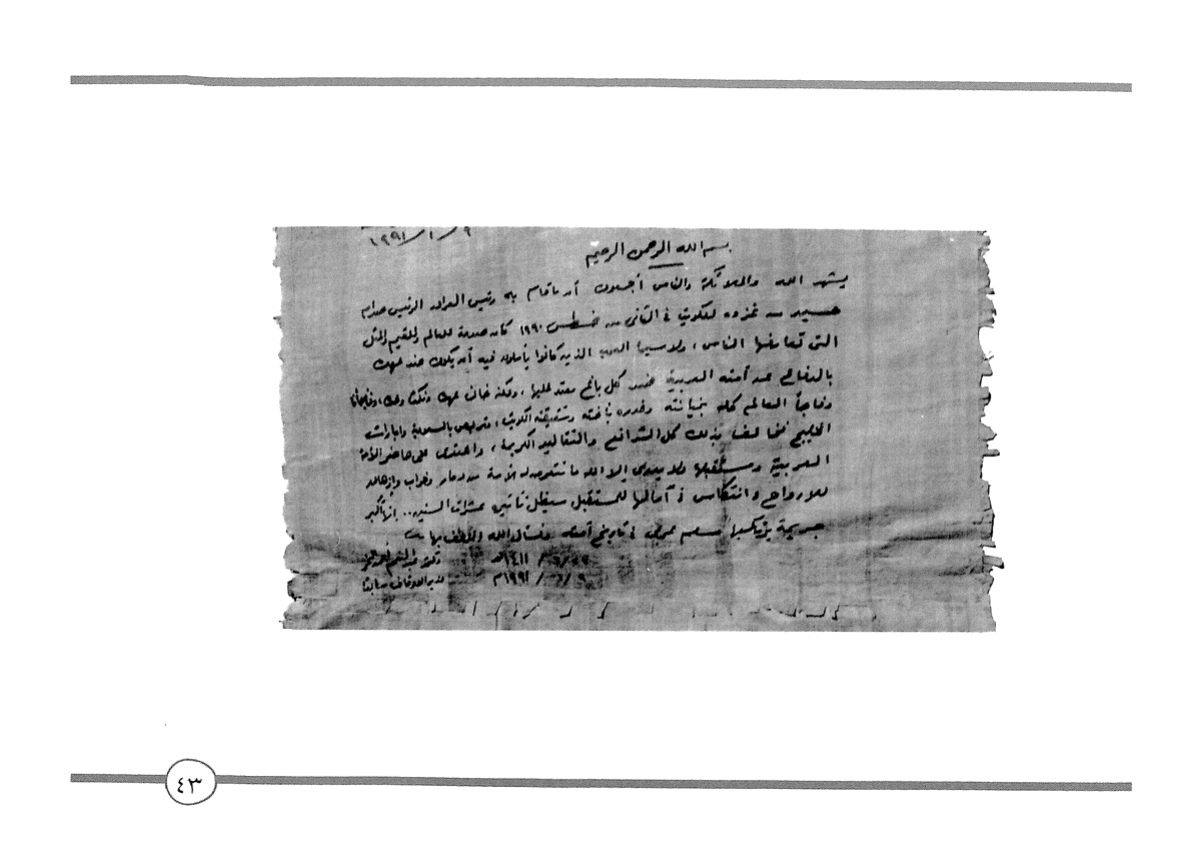 ٩/١/١٩٩١
بسم الله الرحمن الرحيم
يشهد الله والملائكة والناس أجمعون أن ما قام به رئيس العراق الرئيس صدام
حسين من غزوه للكويت في الثاني من غسطس ١٩٩٠ كان صدمة للعالم وللقيم والمثل
التي تعارفها الناس، ولا سيما العرب الذين كانوا يأملون فيه أن يكون عند عهده
بالدفاع عن أمته العربية ضد كل باغ معتد عليها، ولكنه خان عهده ونكث وعده، وفاجأنا
وفاجأ العالم كله بخيانته وغدره بأخته وشقيقته الكويت، وتربص بالسعودية وامارات
الخليج مخالفا بذلك كل الشرائع والتقاليد الكريمة، واعتدى على حاضر الأمة
العربية ومستقبلها ولا يدري إلا الله ما تتعرض له الأمة من دمار وخراب وإزهاق
للارواح وانتكاس في آمالها للمستقبل ستظل تأتين عشرات السنين.. إنها أكبر
جريمة يرتكبها مسلم عربي في تاريخ أمته ونسأل الله اللطف بها
١٤١١هـ
٩/ /١٩٩١م
٤٣